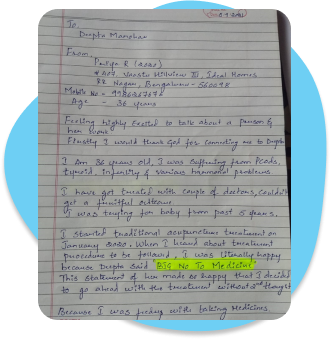 To
Deepta Manohar
From,
Priya R (2020)
# 207, Vaastu Hillview III, Ideal Homes
RR Nagar, Bengaluru - 560098
Mobile No -
Age - 36 years
Feeling highly Excited to talk about a person &
her
Firstly I would thank God for connecting me to Deepta
I Am 36 years old, I was suffering from Pcods,
tyroid, infertility & various harmonal problems
I have got treated with couple of doctors, couldn't
get a fruitful outcome.
I was trying for baby from past 5 years.
I started traditional acupuncture treatment on
January 2020. When I heard about treatment
procedure to be followed, I was literally happy
because Deepta said "BIG No To Medicine"
This statement of her made so happy that I decided
to go ahead with the treatment without 2nd thought
Because I was freaky with taking medicines